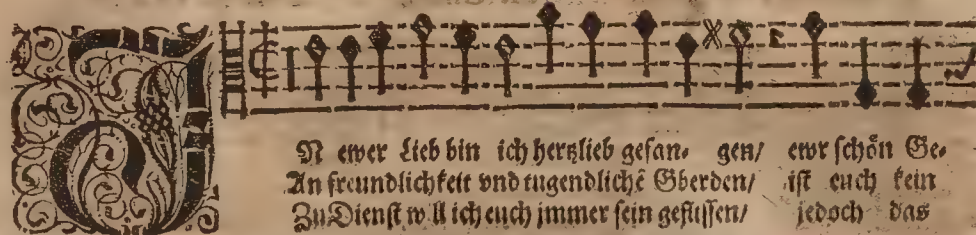 IN ewer Lieb bin ich hertzlieb gefan- gen/ ewr schön Ge-
An freundlichkeit vnd tugendlichē Gberden/ ist euch kein
Zu Dienst w ll ich euch jmmer sein geflissen/ jedoch das